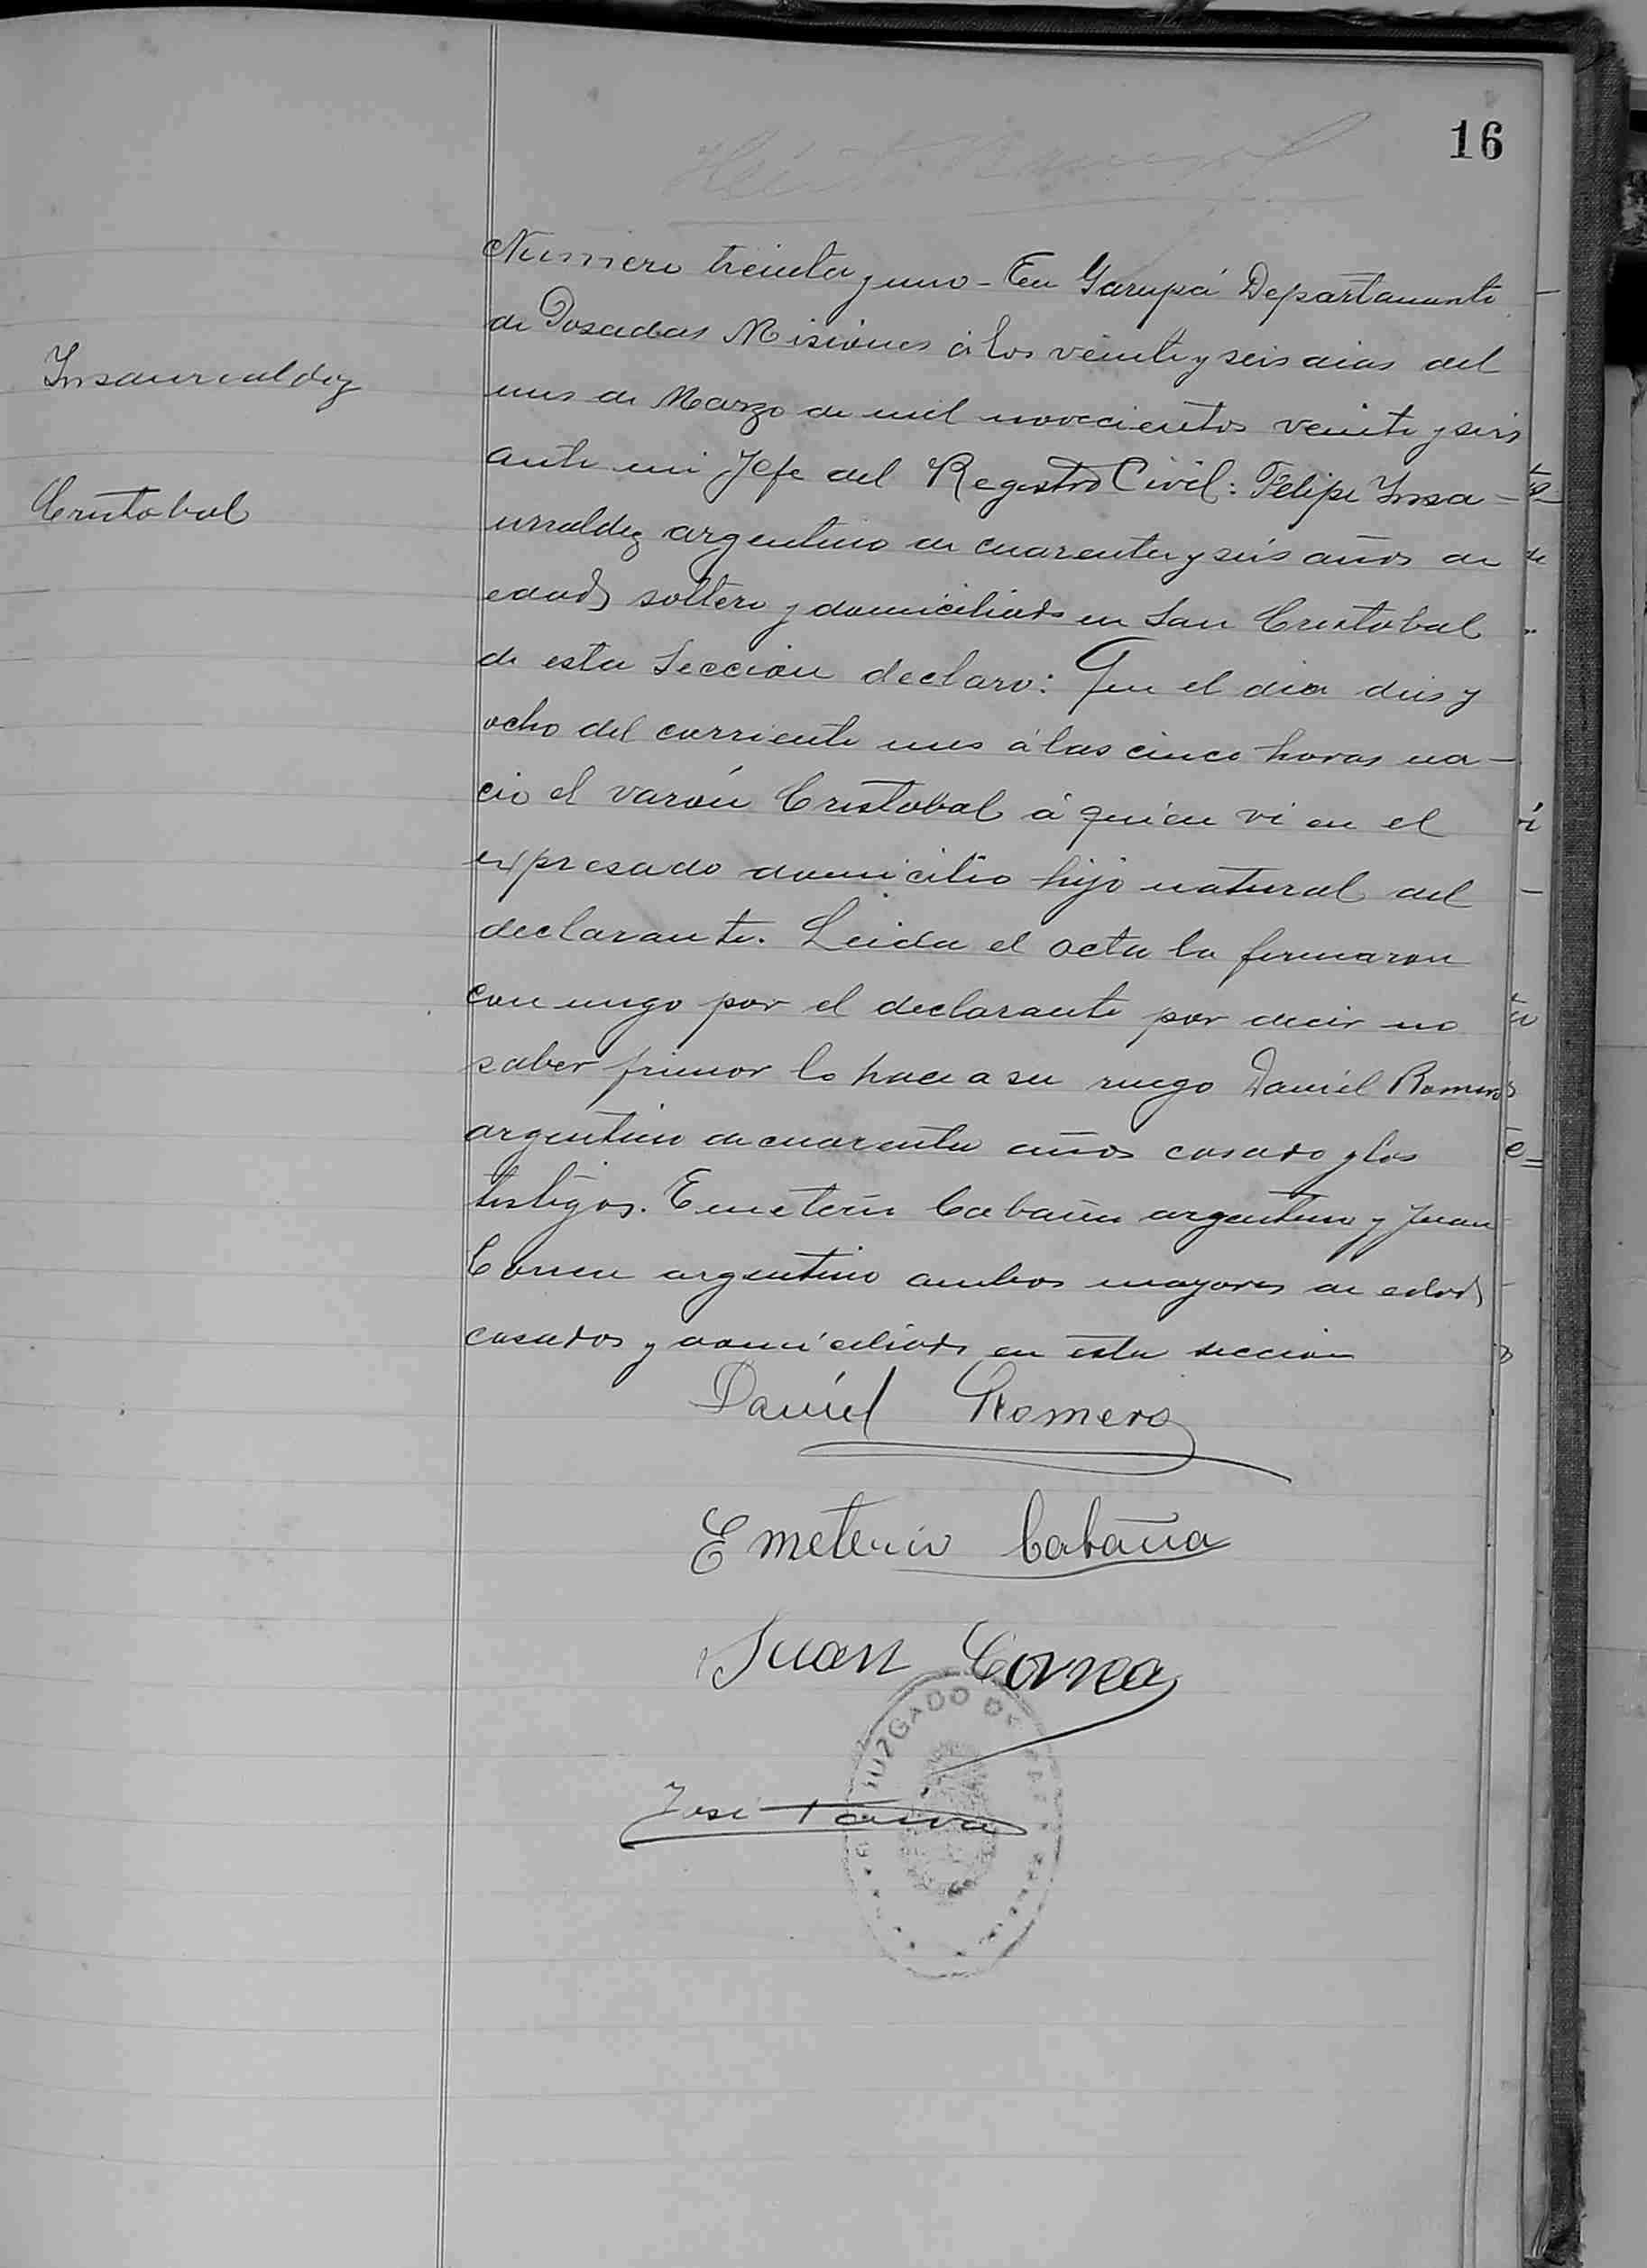 16
Numero treinta y uno - En Garupá Departamento
de Posadas Misiones á los veinte y seis dias del
Insaurraldez
mes de Marzo de mil novecientos veinte y seis
ante mi Jefe del Registro Civil: Felipe Insa=
Cristobal
urraldez argentino de cuarenta y seis años de
edad soltero y domiciliado en San Cristobal
de esta Seccion declaro: Que el dia dies y
ocho del corriente mes á las cinco horas na-
cio el varón Cristobal á quien vi en el
expresado domicilio hijo natural del
declarante. Leida el acta la firmaron
con migo por el declarante por decir no
saber firmar lo hace a su ruego Daniel Romero
argentino de cuarenta años casado y los
testigos. Emeterio Cabaña argentino y Juan
Correa argentino ambos mayores de edad
casados y domiciliados en esta seccion
Daniel Romero
Emeterio Cabaña
Juan Correa
JUZGADO DE
José